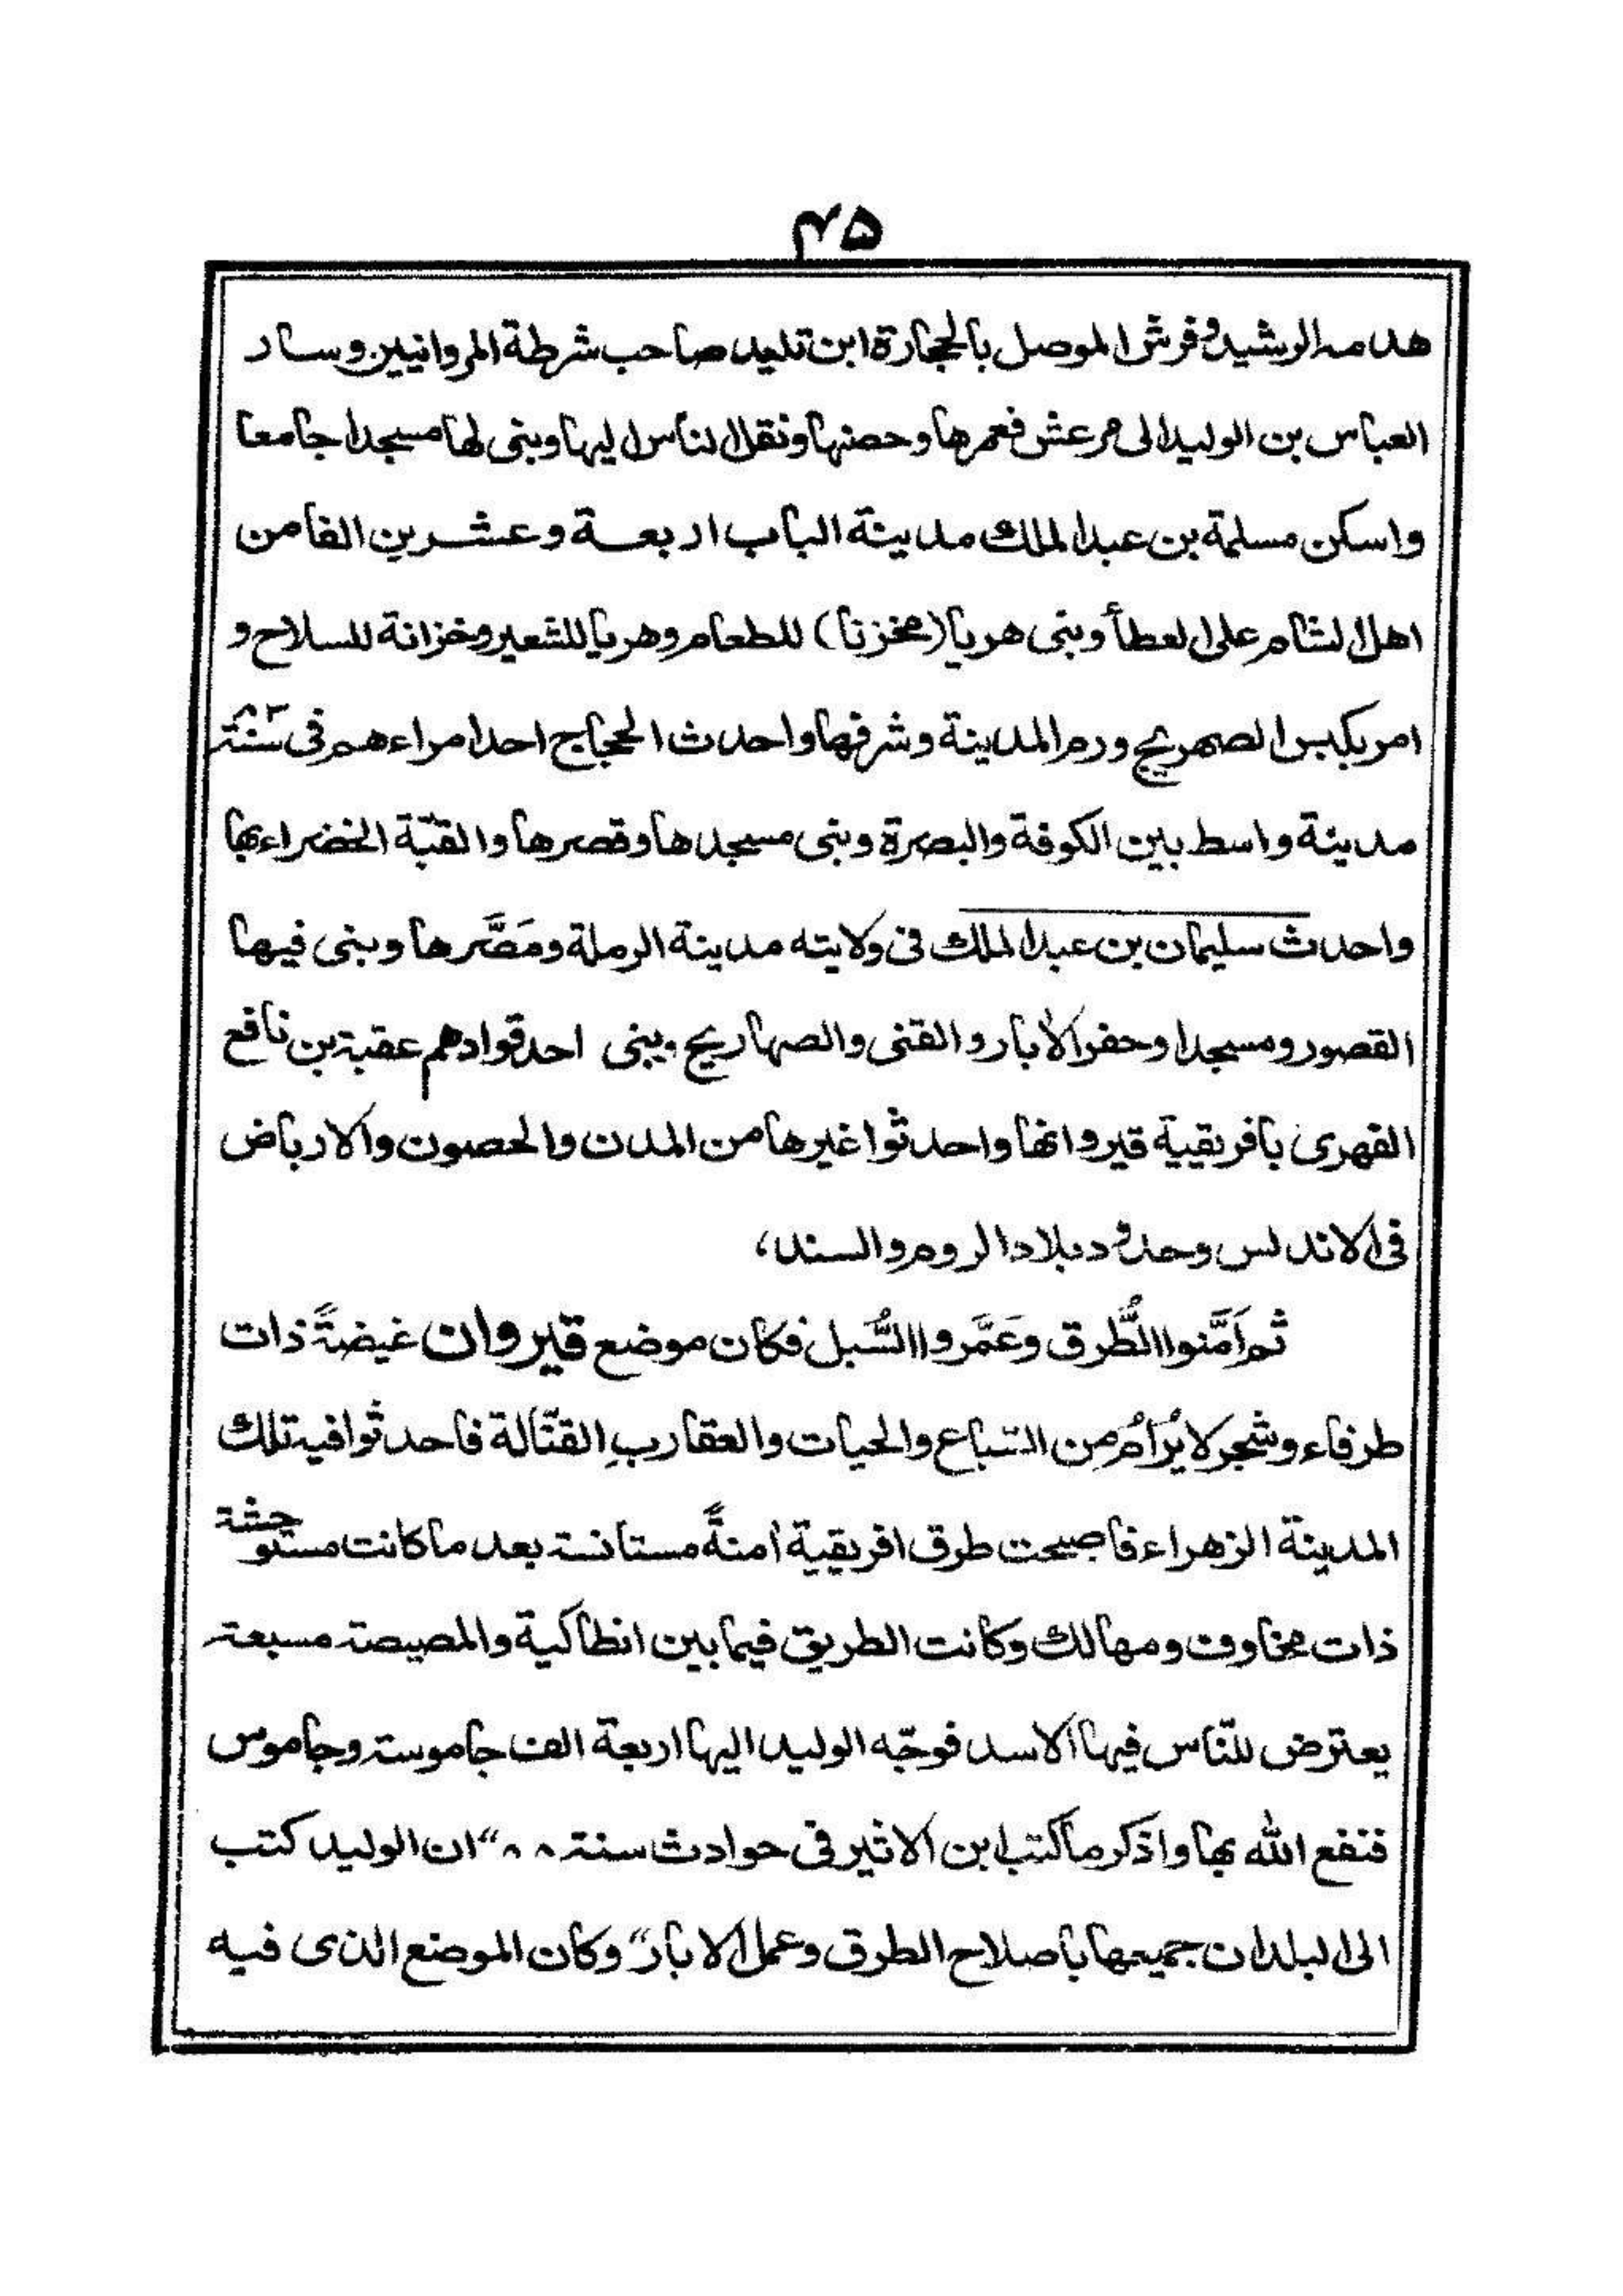 ۴۵
هدمه الرشيد وفرش الموصل بالحجارة ابن تليد صاحب شرطة المروانيين وسار
العباس بن الوليد الى مرعش فعمرها وحصنها ونقل الناس اليها وبنى لها مسجدا جامعا
واسكن مسلمة بن عبد الملك مدينة الباب اربعة وعشرين الفا من
اهل الشام على العطأ وبنى هريا (مخزنا) للطعام وهريا للشعير وخزانة للسلاح و
امر بكبس الصهريج ورم المدينة وشرفها واحدث الحجاج احد امراءهم فى سنة
مدينة واسط بين الكوفة والبصرة وبنى مسجدها وقصرها والقبّة الخضراء بها
واحدث سليمان بن عبد الملك فى ولايته مدينة الرملة ومَصَّرها وبنى فيها
القصور ومسجدا وحفر الأبار والقنى والصهاريج وبنى احد قوادهم عقبة بن نافع
الفهرى بافريقية قيروانها واحدثوا غيرها من المدن والحصون والارباض
فى الاندلس وحدود بلاد الروم والسند،
ثم اَمَّنوا الطُّرق وعَمَّروا السُّبل فكان موضع قيروان غيضةً ذات
طرفاء وشجر لا يُرَامُ من السّباع والحيات والعقاربِ القتّالة فاحدثوا فيه تلك
المدينة الزهراء فاصبحت طرق افريقية اٰمنةً مستانسة بعد ما كانت مستوحشة
ذات مخاوف ومهالك وكانت الطريق فيما بين انطاكية والمصيصة مسبعة
يعترض للنّاس فيها الاسد فوجّه الوليد اليها اربعة الف جاموسة وجاموس
فنفع الله بها واذكر ما كتب ابن الاثير فى حوادث سنة ۸۸ "ان الوليد كتب
الى البلدان جميعها باصلاح الطرق وعمل الابار" وكان الموضع الذى فيه